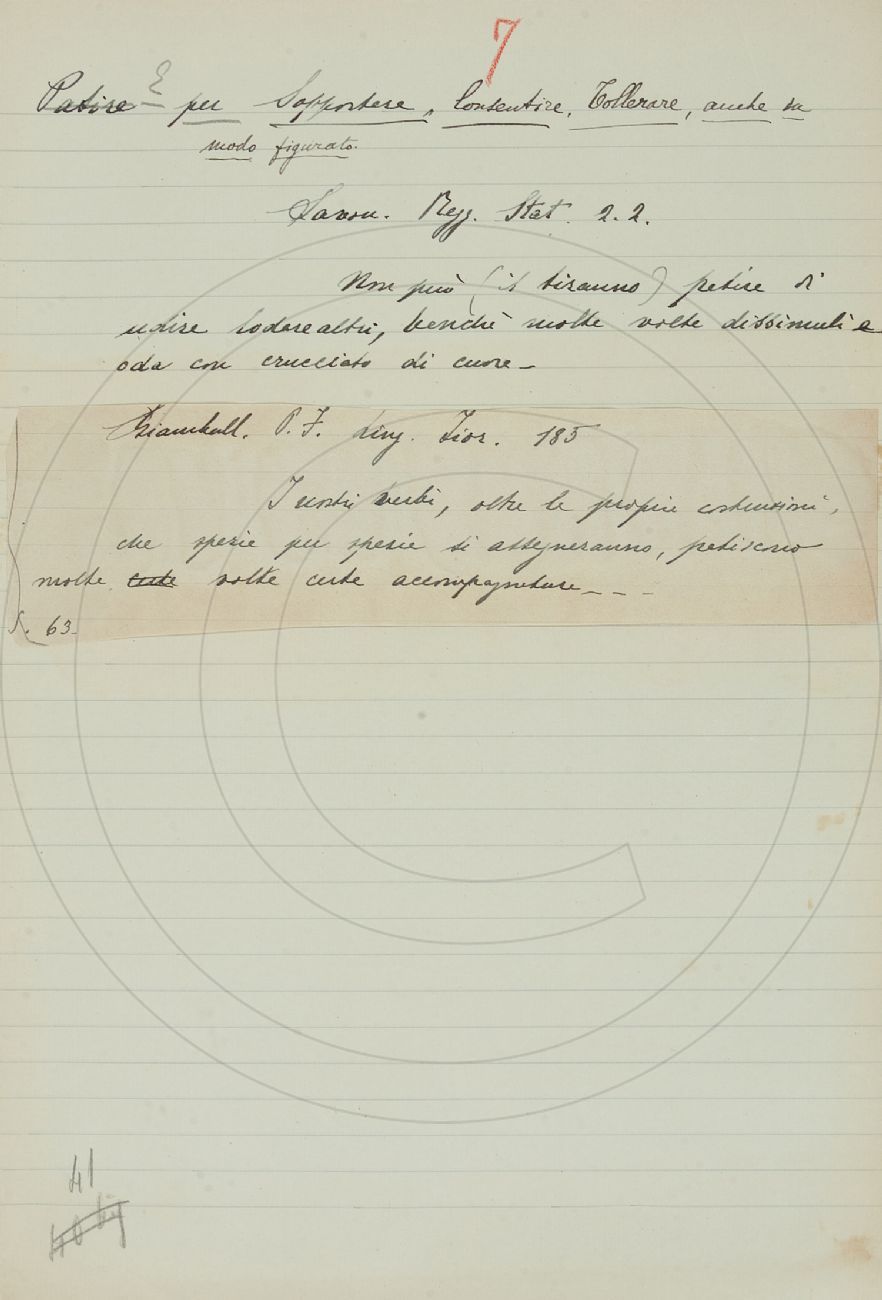 7
Patire E per Sopportare, Consentire, Tollerare, anche in
modo figurato.
Savon. Regg. Stat. 2. 2.
Non può (il tiranno) patire di
udire lodare altri, benchè molte volte dissimuli e
oda con crucciato di cuore_
Giambull. P. F. Ling. Fior. 185
I nostri verbi, oltre le proprie costruzioni,
che spezie per spezie si assegneranno, patiscono
molte certe volte certe accompagnature_ _ _
63
41